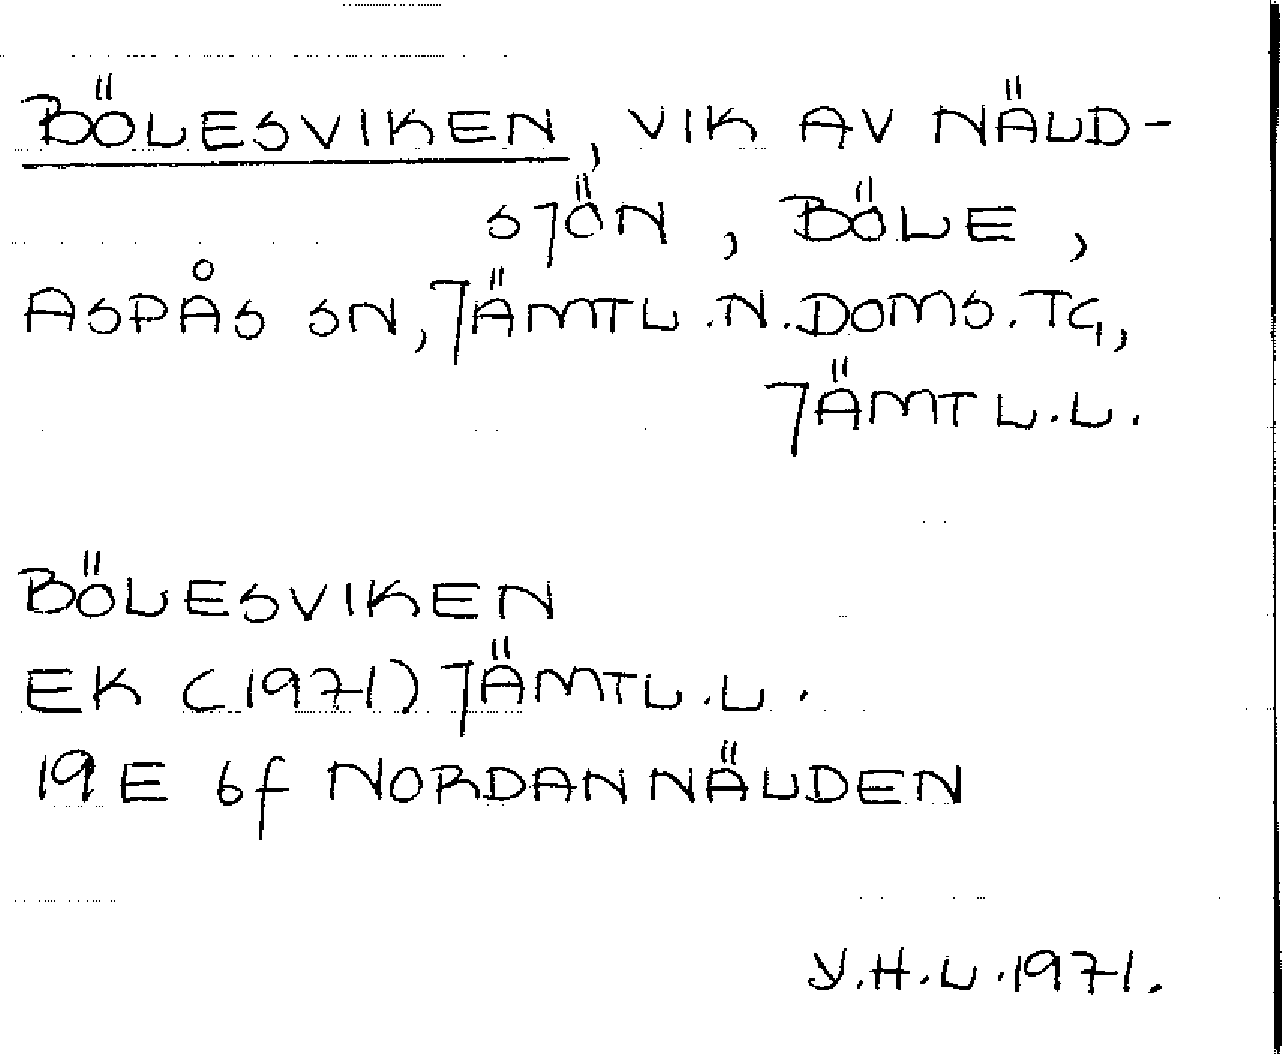 BÖLESVIKEN, VIK AV NÄLD-
SJÖN, BÖLE,
ASPÅS SN, JÄMTL.N.DOMS.TG,
JÄMTL.L.
BÖLESVIKEN
EK (1971) JÄMTL.L.
19E 6f NORDANNÄLDEN
Y.H.L.1971.